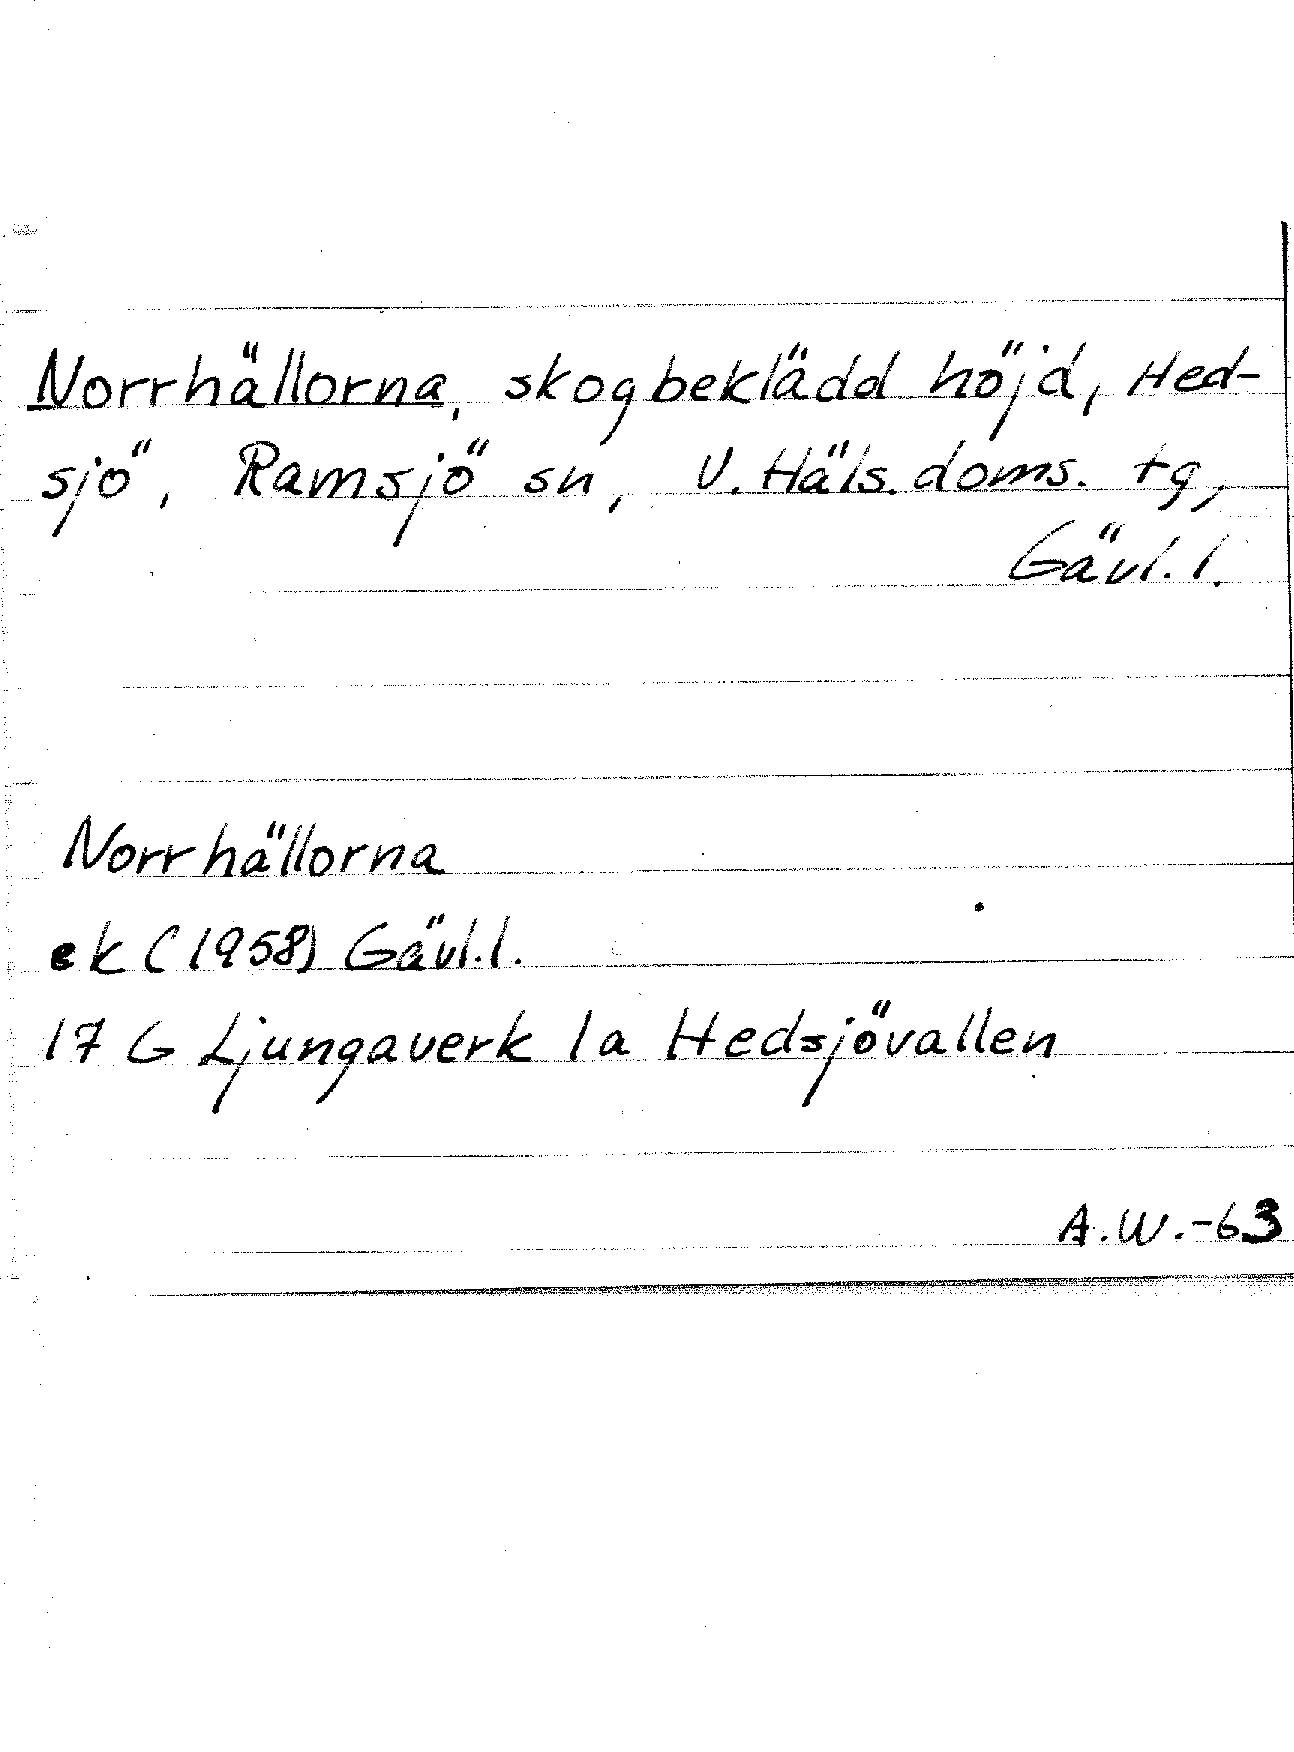 Norrhällorna, skogbeklädd höjd, Hed-
sjö, Ramsjö sn, V. Häls. doms. tg,
Gävl. l.
Norrhällorna
ek (1958) Gävl. l.
17 G Ljungaverk 1a Hedsjövallen
A.W.-63